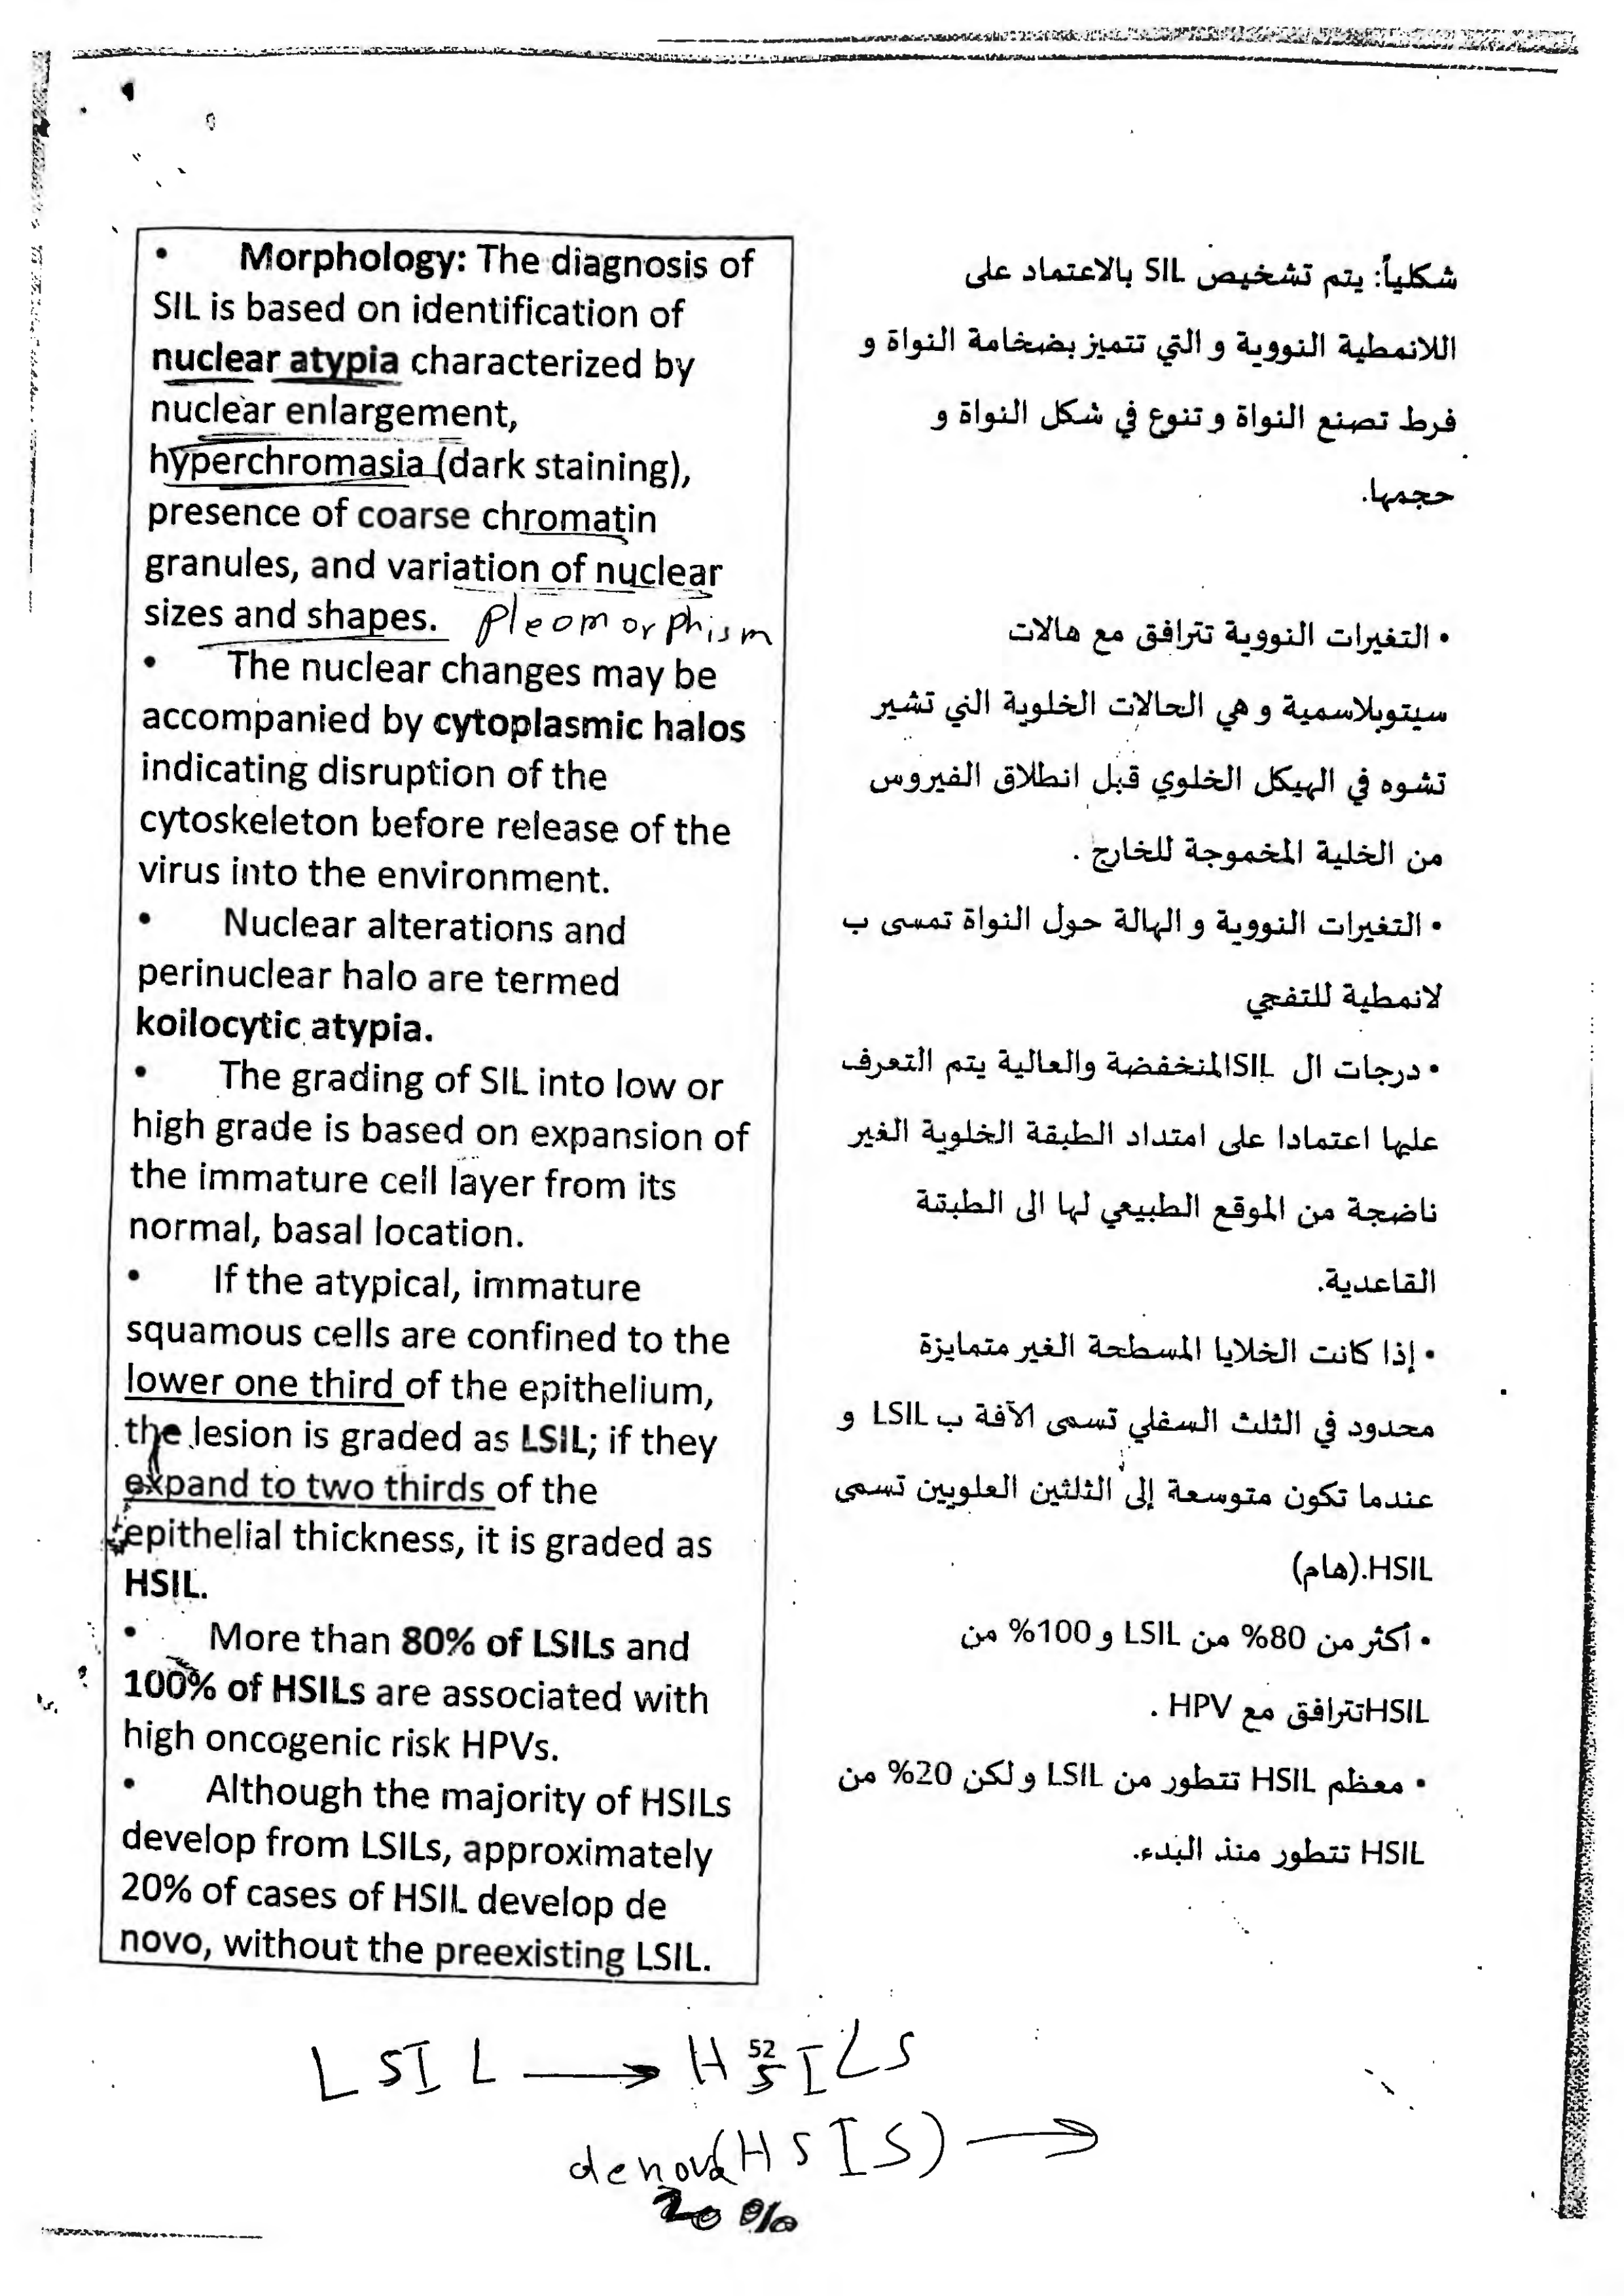 • Morphology: The diagnosis of
SIL is based on identification of
nuclear atypia characterized by
nuclear enlargement,
hyperchromasia (dark staining),
presence of coarse chromatin
granules, and variation of nuclear
sizes and shapes. pleomorphism
• The nuclear changes may be
accompanied by cytoplasmic halos
indicating disruption of the
cytoskeleton before release of the
virus into the environment.
• Nuclear alterations and
perinuclear halo are termed
koilocytic atypia.
• The grading of SIL into low or
high grade is based on expansion of
the immature cell layer from its
normal, basal location.
• If the atypical, immature
squamous cells are confined to the
lower one third of the epithelium,
the lesion is graded as LSIL; if they
expand to two thirds of the
epithelial thickness, it is graded as
HSIL.
• More than 80% of LSILs and
100% of HSILs are associated with
high oncogenic risk HPVs.
• Although the majority of HSILs
develop from LSILs, approximately
20% of cases of HSIL develop de
novo, without the preexisting LSIL.
شكلياً: يتم تشخيص SIL بالاعتماد على
اللانمطية النووية و التي تتميز بضخامة النواة و
فرط تصنع النواة و تنوع في شكل النواة و
حجمها.
• التغيرات النووية تترافق مع هالات
سيتوبلاسمية و هي الحالات الخلوية التي تشير
تشوه في الهيكل الخلوي قبل انطلاق الفيروس
من الخلية المخموجة للخارج .
• التغيرات النووية و الهالة حول النواة تمسى ب
لانمطية للتفجي
• درجات ال SILالمنخفضة والعالية يتم التعرف
عليها اعتمادا على امتداد الطبقة الخلوية الغير
ناضجة من الموقع الطبيعي لها الى الطبقة
القاعدية.
• إذا كانت الخلايا المسطحة الغير متمايزة
محدود في الثلث السفلي تسمى الآفة ب LSIL و
عندما تكون متوسعة إلى الثلثين العلويين تسمى
HSIL.(هام)
• أكثر من 80% من LSIL و 100% من
HSILتترافق مع HPV .
• معظم HSIL تتطور من LSIL و لكن 20% من
HSIL تتطور منذ البدء.
52
LSIL → HSILS
denovo(HSIS) →
20 %